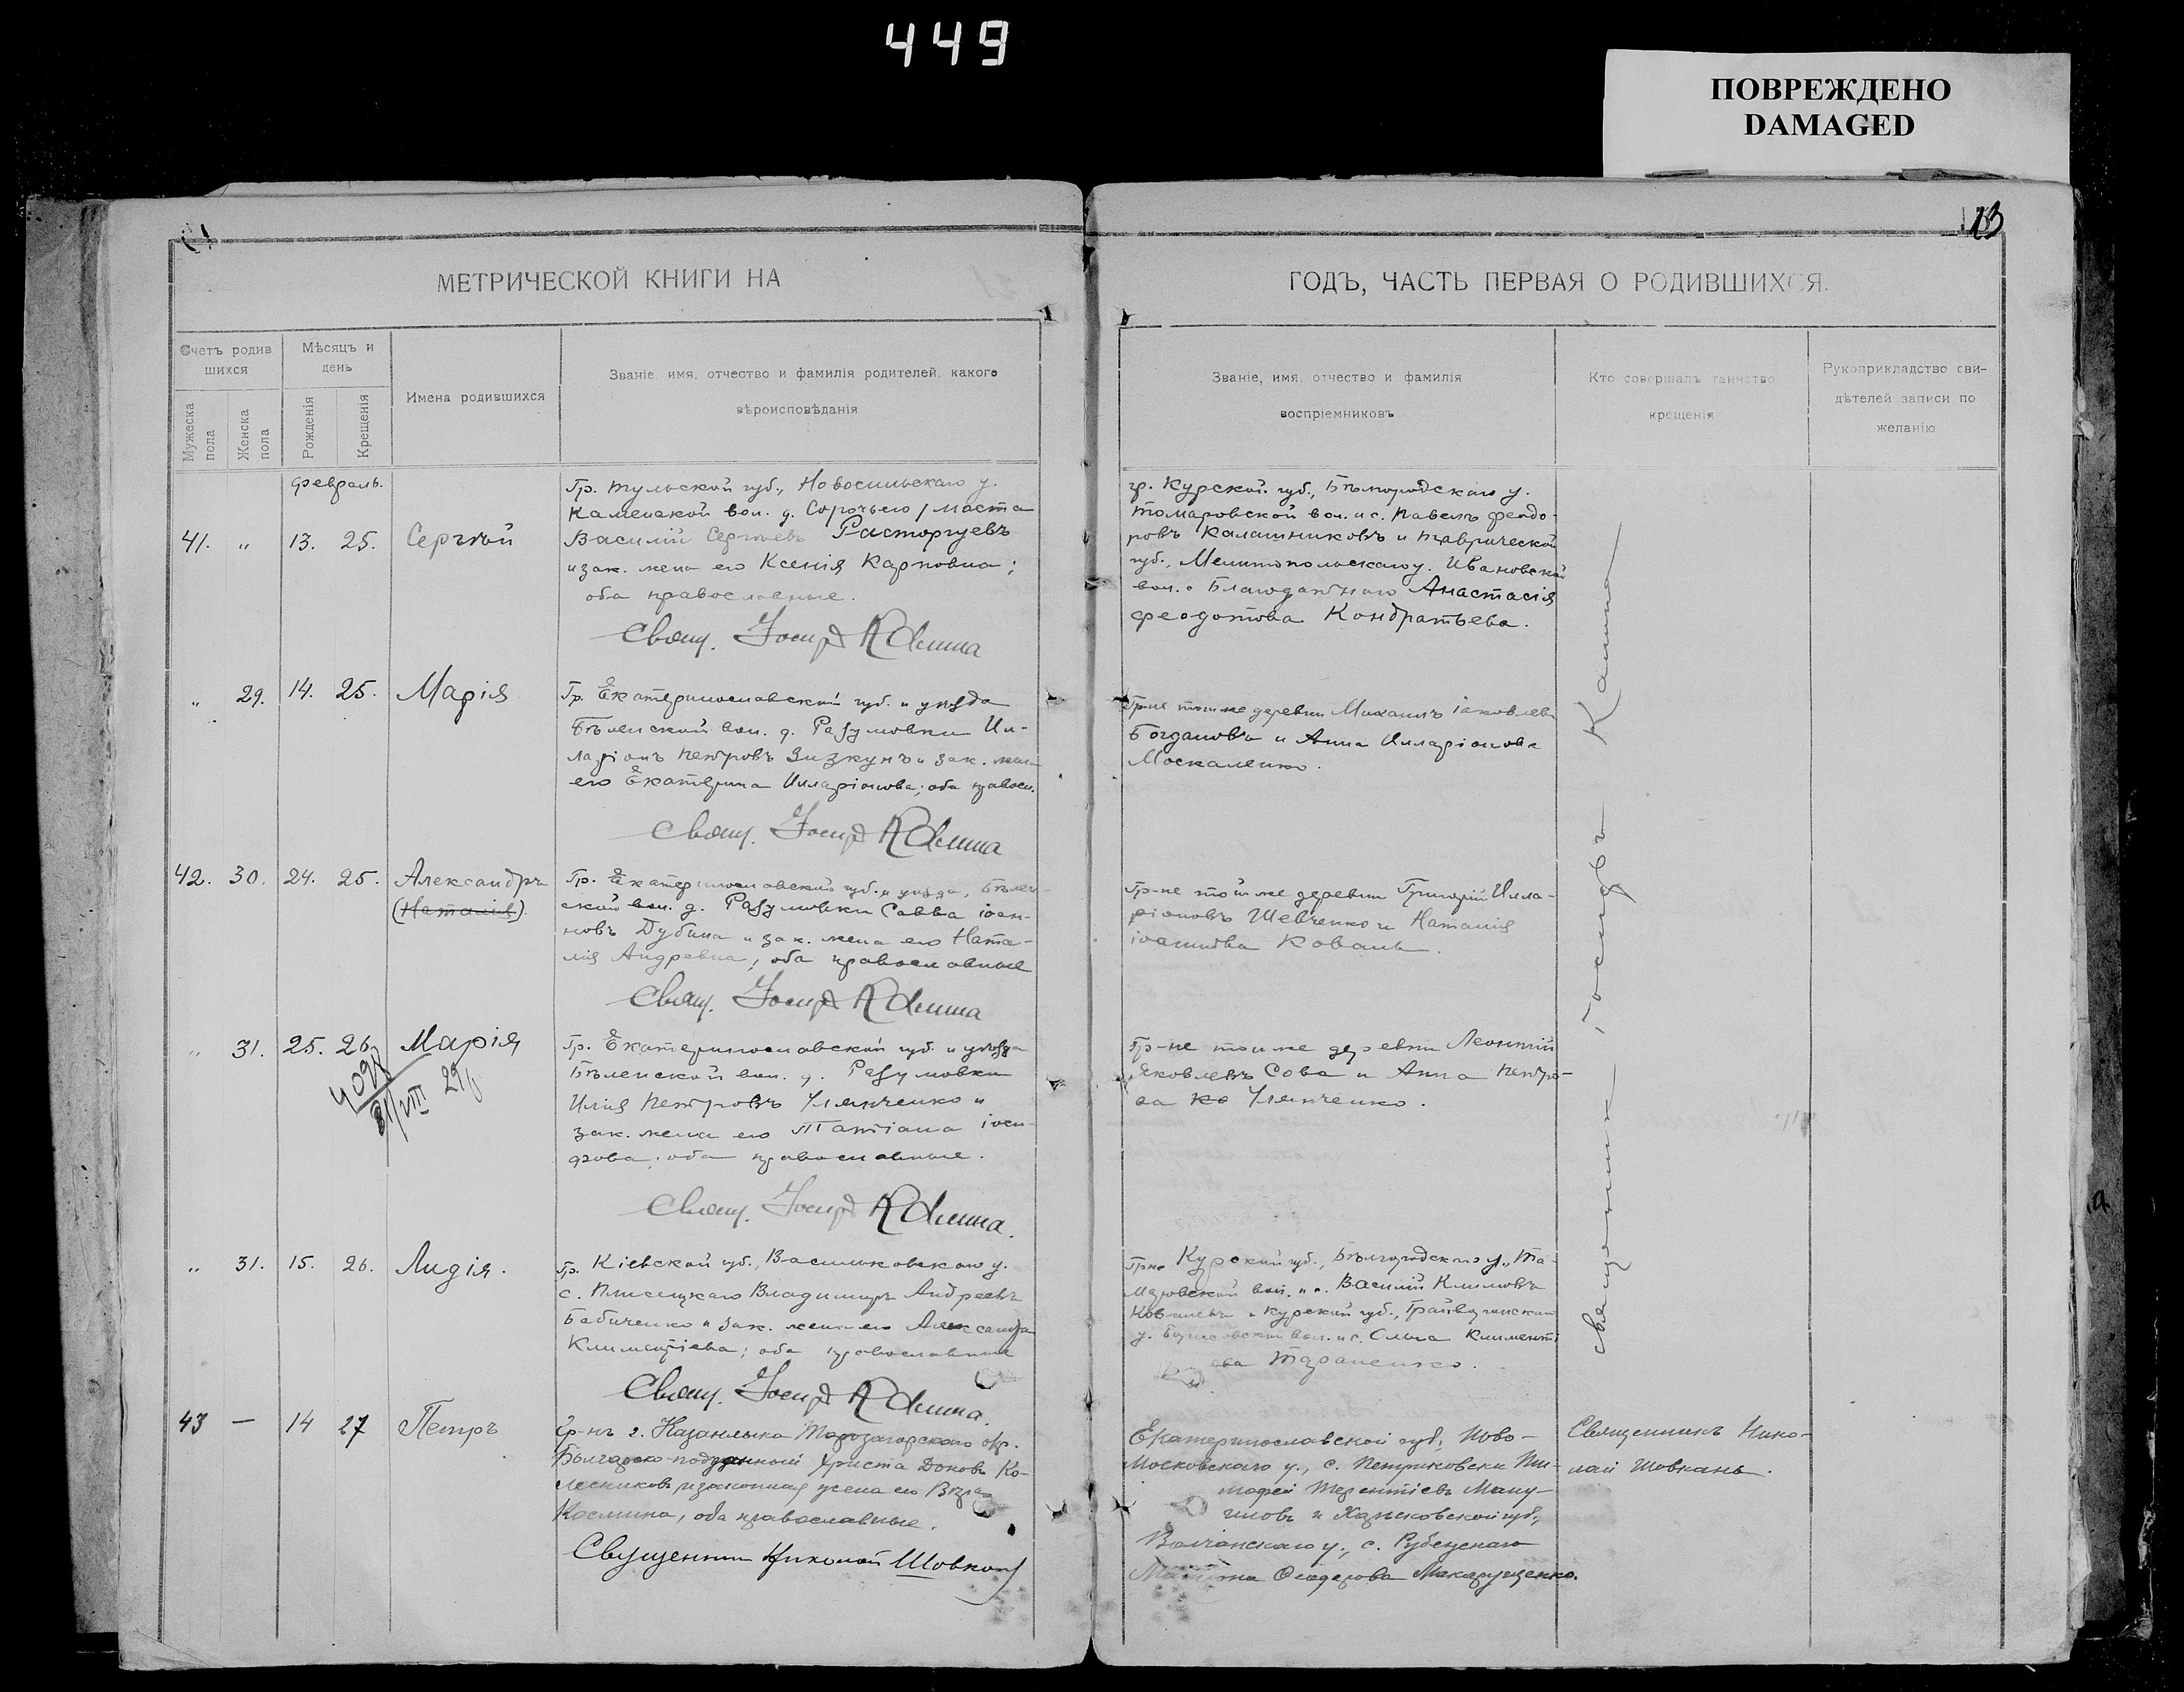 449
ПОВРЕЖДЕНО
DAMAGED
13
МЕТРИЧЕСКОЙ КНИГИ НА
ГОДЪ, ЧАСТЬ ПЕРВАЯ О РОДИВШИХСЯ.
Счетъ родив
шихся
Мужеска пола
Женска пола
Мѣсяцъ и
день
Рожденія
Крещенія
Имена родившихся
Званіе, имя, отчество и фамилія родителей, какого
вѣроисповѣданія
Званіе, имя, отчество и фамилія
воспріемниковъ
Кто совершалъ таинство
крещенія
Рукоприкладство сви-
дѣтелей записи по
желанію
Февраль.
41. „ 13. 25. Сергѣй
Гр. Тульской губ., Новосильскаго у.
Каменской вол. д. Сорочьего Моста
Василій Сергѣевъ Расторгуевъ
и зак. жена его Ксенія Карповна;
оба православные.
Свящ. Іосифъ Калина
гр. Курской губ., Бѣлгородскаго у.
Томаровской вол. и с. Павелъ Феодо-
ровъ Калашниковъ и Таврической
губ., Мелитопольскаго у. Ивановской
вол. с. Благодатнаго Анастасія
Феодотова Кондратьева.
„ 29. 14. 25. Марія
Гр. Екатеринославской губ. и уѣзда
Бѣленской вол. д. Разумовки Ил-
ларіонъ Петровъ Зизкунъ и зак. жена
его Екатерина Илларіонова; оба правосл.
Свящ. Іосифъ Калина
Гр-не той же деревни Михаилъ Іаковлевъ
Богдановъ и Анна Илларіонова
Москаленко.
42. 30. 24. 25. Александръ
(Наталія).
Гр. Екатеринославской губ. и уѣзда, Бѣлен-
ской вол. д. Разумовки Савва Іоан-
новъ Дубина и зак. жена его Ната-
лія Андреевна; оба православные
Свящ. Іосифъ Калина
Гр-не той же деревни Григорій Илла-
ріоновъ Шевченко и Наталія
Іоаннова Коваль.
„ 31. 25. 26. Марія
Гр. Екатеринославской губ. и уѣзда
Бѣленской вол. д. Разумовки
Илія Петровъ Улянченко и
зак. жена его Татіана Іоси-
фова; оба православные.
Свящ. Іосифъ Калина.
Гр-не той же деревни Леонтій
Яковлевъ Сова и Анна Петро-
ва Ко Улянченко.
„ 31. 15. 26. Лидія.
Гр. Кіевской губ., Васильковскаго у.
с. Плисецкаго Владимиръ Андреевъ
Бабиченко и зак. жена его Александра
Климентіева; оба православные
Свящ. Іосифъ Калина.
Гр-не Курской губ., Бѣлгородскаго у., То-
маровской вол. и с. Василій Климовъ
Ковалевъ и Курской губ., Грайворонскаго
у. Борисовской вол. и с. Ольга Климент-
ова Тараненко.
Священникъ Іосифъ Калина
43 — 14 27 Петръ
Гр-нъ г. Казанлыка Старозагорскаго окр.
Болгарско-подданный Христа Доковъ Ко-
лесниковъ и законная жена его Вѣра
Космина, оба православные.
Священникъ Николай Шовкань
Екатеринославской губ., Ново-
московскаго у., с. Петриковски Ти-
мофей Терентіевъ Ману-
иловъ и Харьковской губ.,
Волчанскаго у., с. Рубежнаго
Феодорова Макарущенко.
Священникъ Нико-
лай Шовкань.